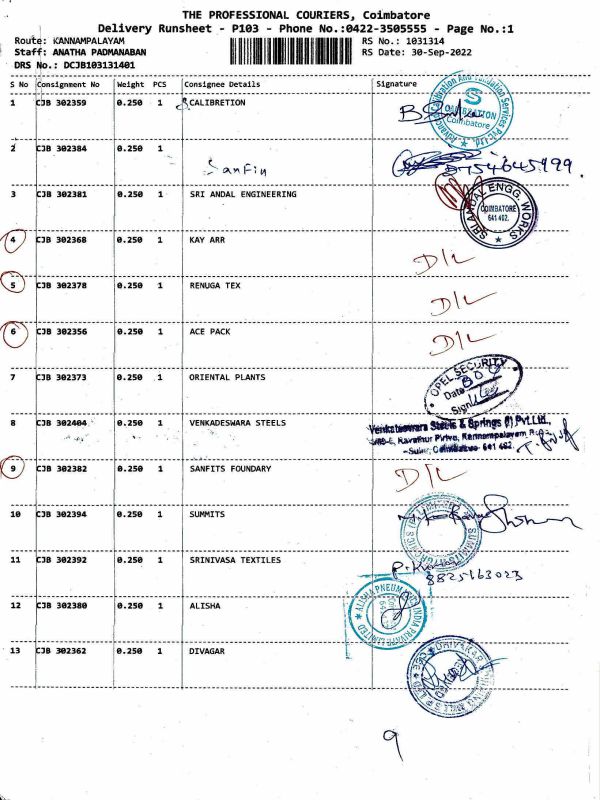 THE PROFESSIONAL COURIERS, Coimbatore
Delivery Runsheet - P103 - Phone No.:0422-3505555 - Page No.:1
Route: KANNAMPALAYAM RS No.: 1031314
Staff: ANATHA PADMANABAN RS Date: 30-Sep-2022
DRS No.: DCJB103131401
S No Consignment No Weight PCS Consignee Details Signature
1 CJB 302359 0.250 1 CALIBRETION
CALIBRATION
Coimbatore
2 CJB 302384 0.250 1
Sanfin
3 CJB 302381 0.250 1 SRI ANDAL ENGINEERING
SRI ANDAL ENGG. WORKS
COIMBATORE
641 402.
4 CJB 302368 0.250 1 KAY ARR
D/L
5 CJB 302378 0.250 1 RENUGA TEX
D/L
6 CJB 302356 0.250 1 ACE PACK
D/L
7 CJB 302373 0.250 1 ORIENTAL PLANTS
OPEL SECURITY
Date
Sign
8 CJB 302404 0.250 1 VENKADESWARA STEELS
Venkateswara Steels & Springs (I) Pvt.Ltd.,
Kannampalayam
Sulur, Coimbatore- 641 402.
9 CJB 302382 0.250 1 SANFITS FOUNDARY
D/L
10 CJB 302394 0.250 1 SUMMITS
11 CJB 302392 0.250 1 SRINIVASA TEXTILES
8825163023
12 CJB 302380 0.250 1 ALISHA
ALISHA PNEUMATIC INDIA PRIVATE LIMITED
13 CJB 302362 0.250 1 DIVAGAR
9